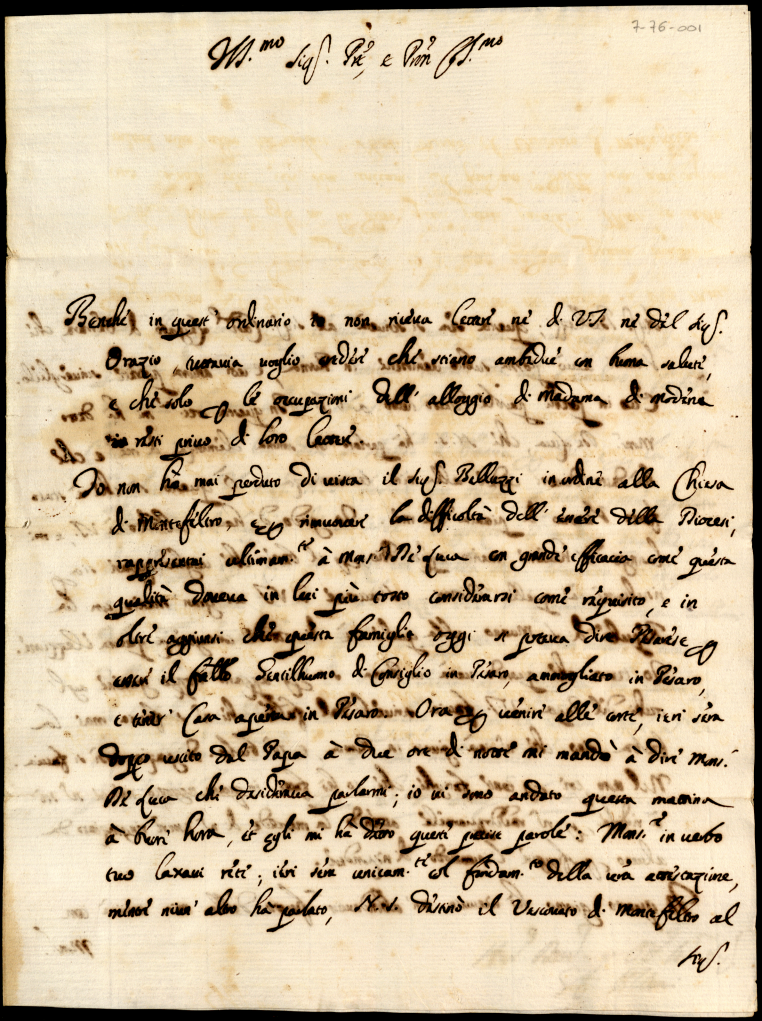 7-76-001
Ill.mo Sig.r P̃re, e Pron Oss.mo
Benche in quest' ordinario io non riceva lettere nè di V.S. nè del Sig.r
Orazio tuttavia voglio credere che stiano ambidue con buona salute,
e che solo le occupazioni dell' alloggio di Madama di Modena
io resti privo di loro lettere.
Io non hò mai perduto di vista il Sig.r Bellezzi in ordine alla Chiesa
di Montefeltro, e rimuovere la difficoltà dell' essere della Diocesi,
rappresentai ultimam.te à Mons.r De Luca con grande efficacia come questa
qualità doveva in lui più tosto considerarsi come requisito, e in
oltre aggiunsi che questa famiglia oggi si poteva dire Pesarese
essere il fratello Gentilhuomo di Consiglio in Pesaro, ammogliato in Pesaro,
e tener Casa aperta in Pesaro. Ora venire alle corte, ieri sera
doppo uscito dal Papa à due ore di notte mi mandò à dire Mons.r
De Luca che desiderava parlarmi; io vi sono andato questa mattina
à buon' hora, et egli mi hà detto queste precise parole: Mons.re in verbo
tuo laxavi rete; ieri sera unicam.te col fondam.to della v̄ra attestazione,
mentre niun' altro hà parlato, N. S. destinò il Vescovato di Montefeltro al
Sig.r